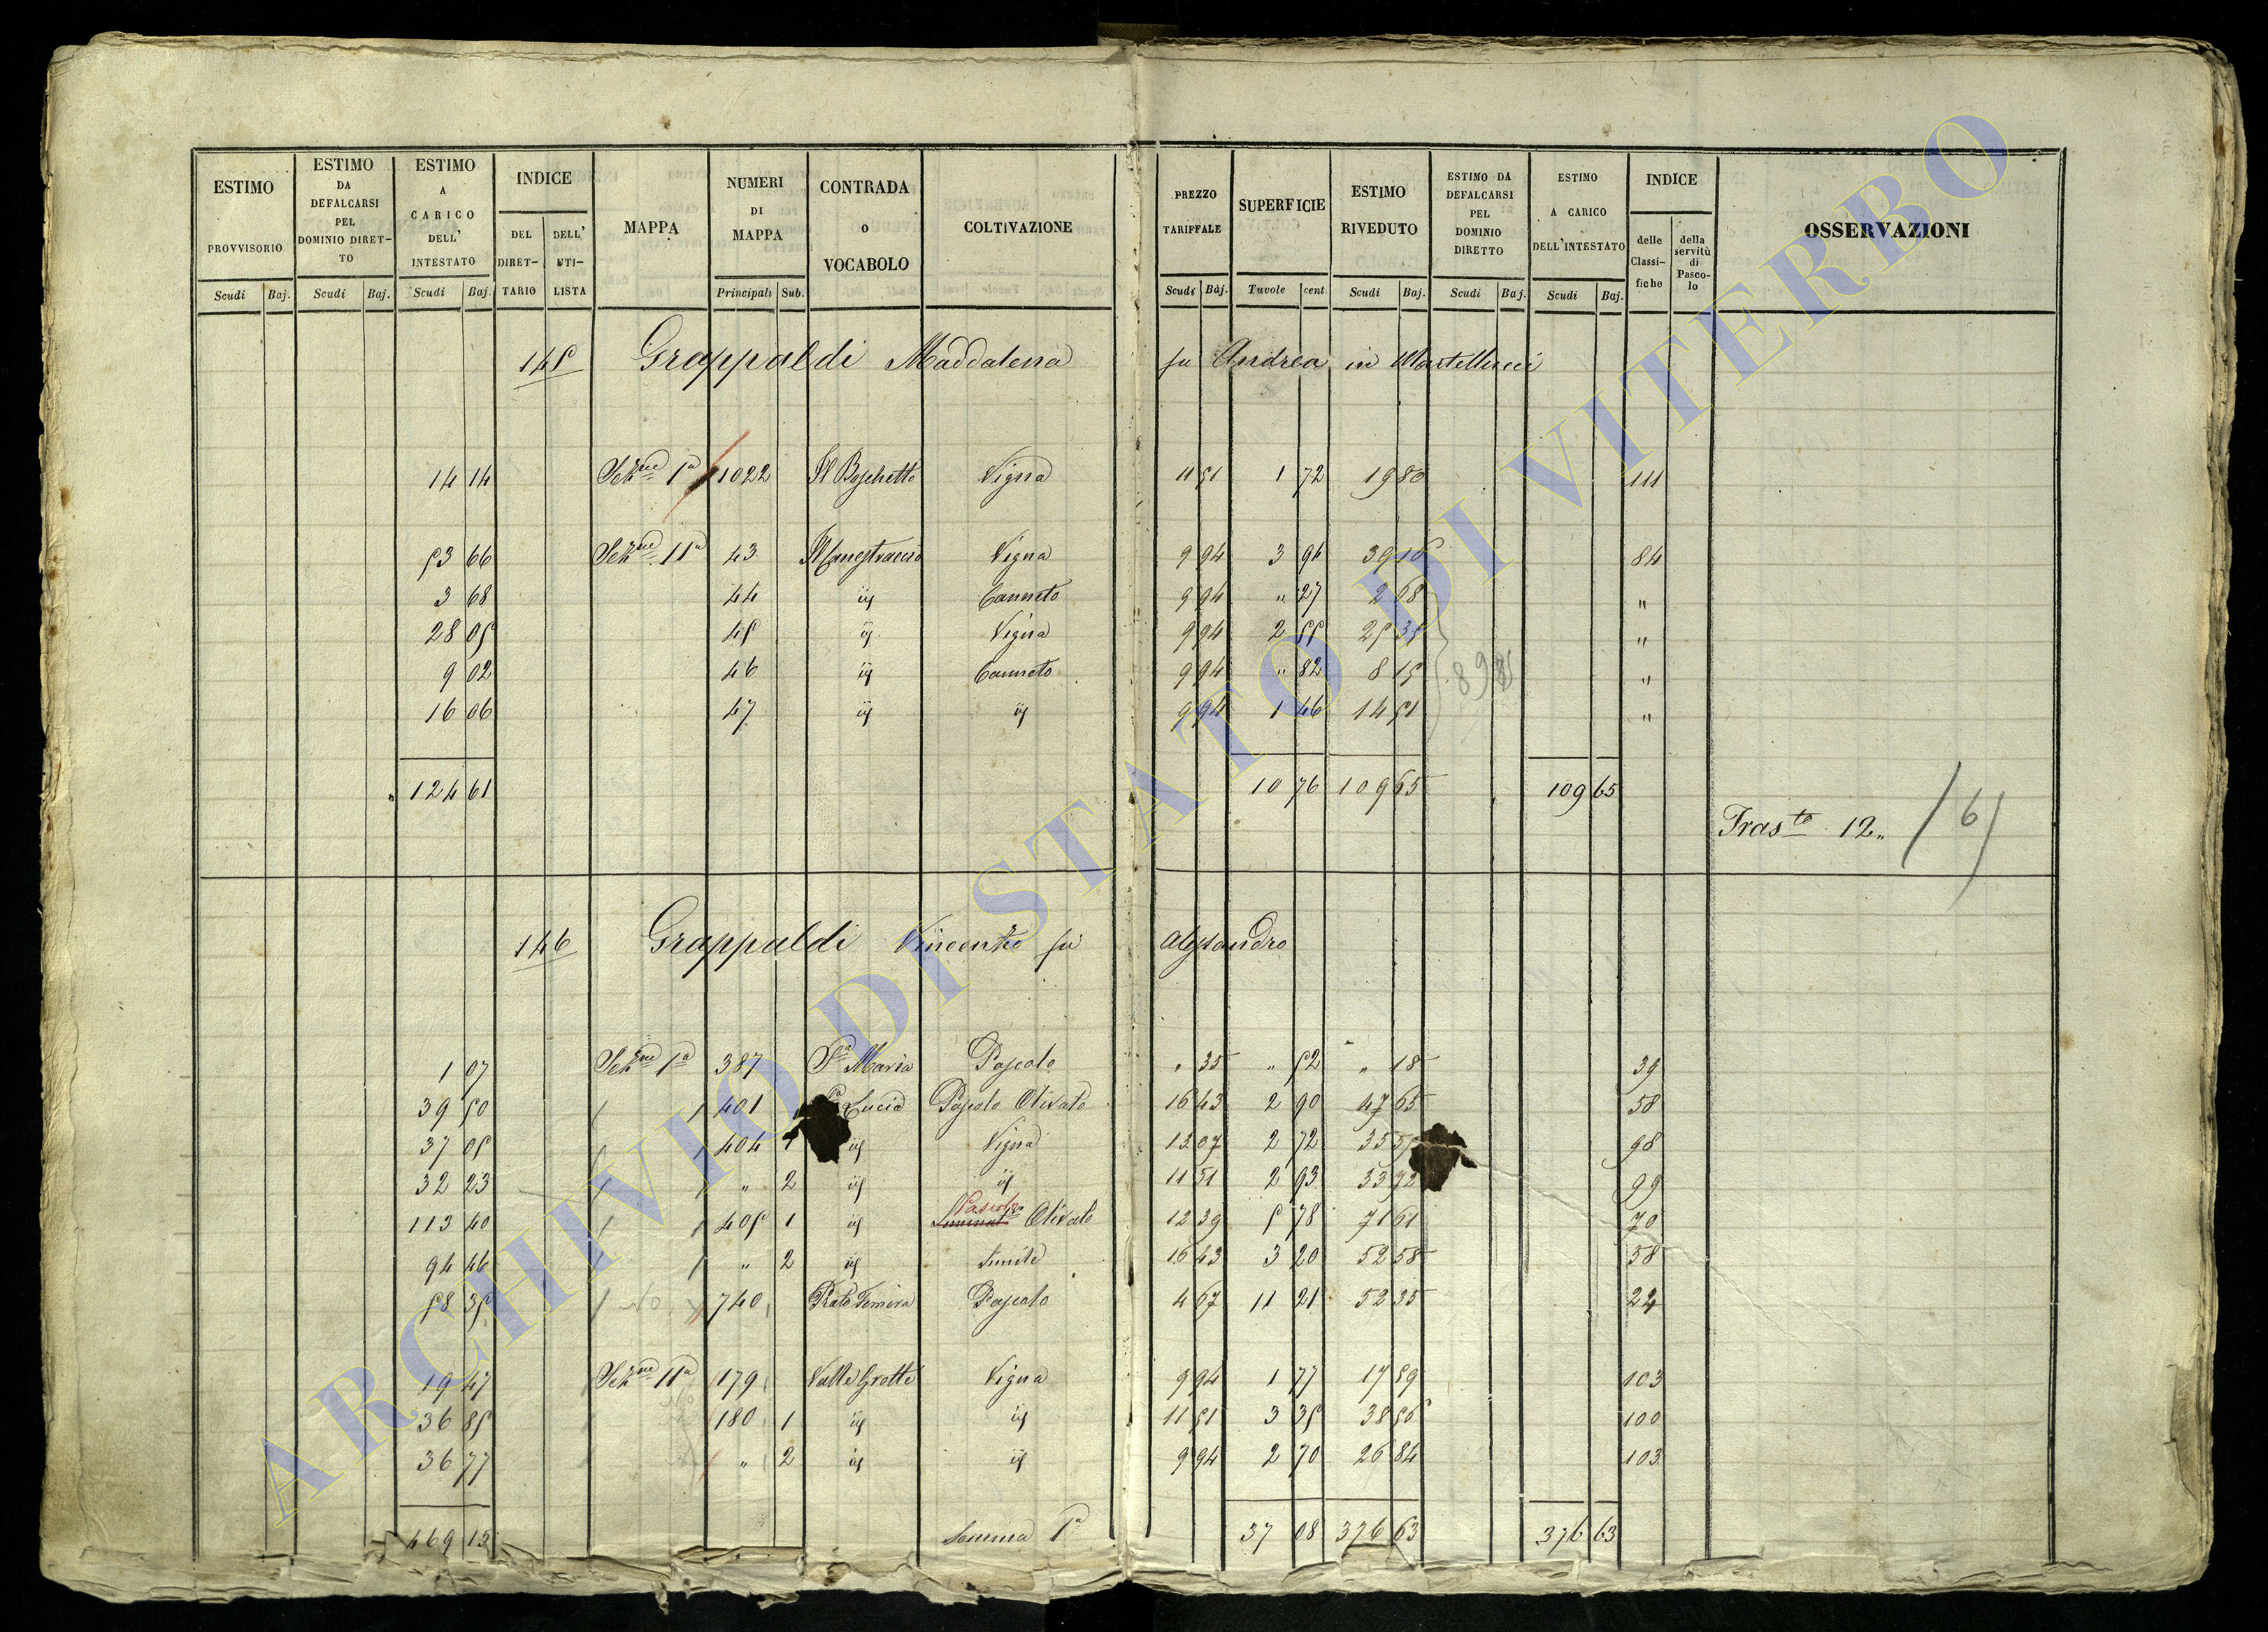 ESTIMO PROVVISORIO
ESTIMO DA DEFALCARSI PEL DOMINIO DIRET-TO
ESTIMO A CARICO DELL' INTESTATO
INDICE
DEL DIRET-TARIO
DELL' UTI-LISTA
MAPPA
NUMERI DI MAPPA
CONTRADA O VOCABOLO
COLTIVAZIONE
PREZZO TARIFFALE
SUPERFICIE
ESTIMO RIVEDUTO
ESTIMO DA DEFALCARSI PEL DOMINIO DIRETTO
ESTIMO A CARICO DELL'INTESTATO
INDICE
delle Classi-fiche
della servitù di Pasco-lo
OSSERVAZIONI
Scudi Baj. Scudi Baj. Scudi Baj. Principali Sub. Scudi Baj. Tavole cent Scudi Baj. Scudi Baj. Scudi Baj.
145 Grappaldi Maddalena fu Andrea in Martellucci
14 14 Sezne 1a 1022 Il Boschetto Vigna 11 51 1 72 19 80 111
53 66 Sezne 11a 43 Il Canestraccio Vigna 9 94 3 94 39 16 84
3 68 44 ÿ Canneto 9 94 " 27 2 68 "
28 05 45 ÿ Vigna 9 94 2 55 25 35 "
9 02 46 ÿ Canneto 9 94 " 82 8 15 "
16 06 47 ÿ ÿ 9 94 1 46 14 51 "
124 61 10 76 109 65 109 65
Trasto 12 " / 6 /
146 Grappaldi Vincenzo fu Alessandro
1 07 Sezne 1a 387 Sa Maria Pascolo " 35 " 52 " 18 39
39 50 401 Lucia Pascolo Olivato 16 43 2 90 47 65 58
37 05 404 1 ÿ Vigna 13 07 2 72 35 55 98
32 23 " 2 ÿ ÿ 11 51 2 93 33 72 99
113 40 405 1 ÿ Pascolo Olivato 12 39 5 78 71 61 70
94 46 " 2 ÿ Simile 16 43 3 20 52 58 58
58 35 No 740 Prato Pascolo 4 67 11 21 52 35 24
19 47 Sezne 11a 179 Valle Grotte Vigna 9 94 1 77 17 59 103
36 85 180 1 ÿ ÿ 11 51 3 35 38 56 100
36 77 " 2 ÿ ÿ 9 94 2 70 26 84 103
469 15 Somma Pa 37 08 376 63 376 63
ARCHIVIO DI STATO DI VITERBO